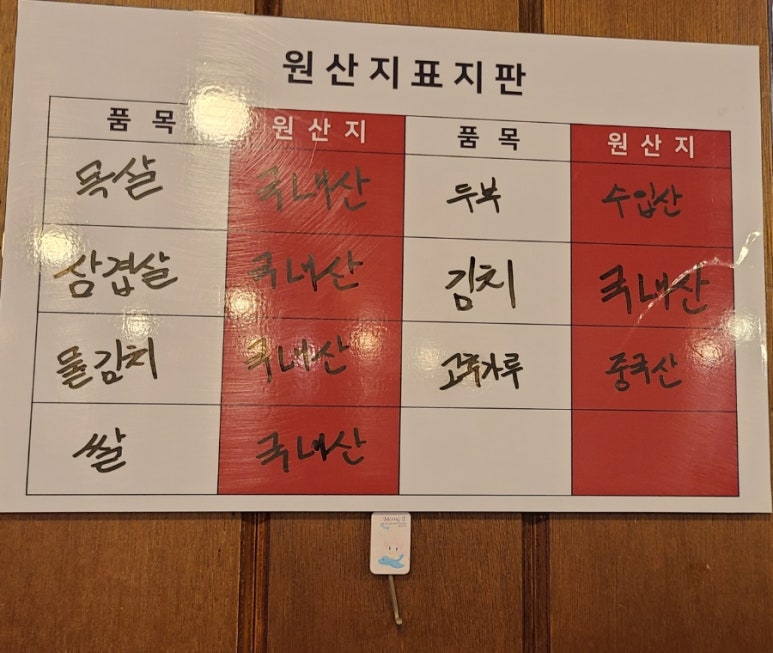 원산지표지판
품 목 원 산 지 품 목 원 산 지
목살 국내산 두부 수입산
삼겹살 국내산 김치 국내산
물김치 국내산 고추가루 중국산
쌀 국내산